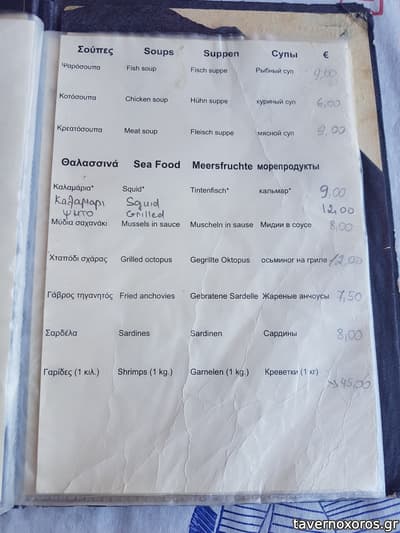 Σούπες Soups Suppen Супы €
Ψαρόσουπα Fish soup Fisch suppe Рыбный суп 9,00
Κοτόσουπα Chicken soup Hühn suppe куриный суп 6,00
Κρεατόσουπα Meat soup Fleisch suppe мясной суп 9,00
Θαλασσινά Sea Food Meersfruchte морепродукты
Καλαμάρια* Squid* Tintenfisch* кальмар* 9,00
Καλαμάρι Squid 12,00
ψητο Grilled
Μύδια σαχανάκι Mussels in sauce Muscheln in sause Мидии в соусе 8,00
Χταπόδι σχάρας Grilled octopus Gegrillte Oktopus осьминог на гриле 12,00
Γάβρος τηγανητός Fried anchovies Gebratene Sardelle Жареные анчоусы 7,50
Σαρδέλα Sardines Sardinen Сардины 8,00
Γαρίδες (1 κιλ.) Shrimps (1 kg.) Garnelen (1 kg.) Креветки (1 кг) 45,00
tavernoxoros.gr